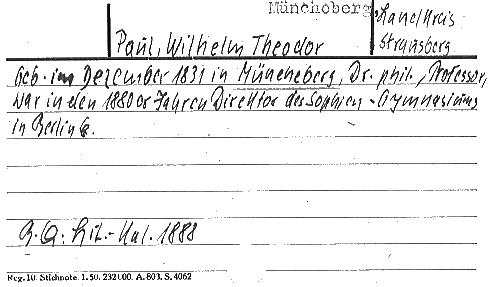 Müncheberg
Landkreis
Strausberg
Paul, Wilhelm Theodor
Geb. im Dezember 1831 in Müncheberg, Dr. phil., Professor,
war in den 1880er Jahren Direktor des Sophien-Gymnasiums
in Berlin C.
B. Q: Lit.-Kal. 1888
Neg. 10. Stichnote. 1. 50. 232l.00. A. 803. S. 4062